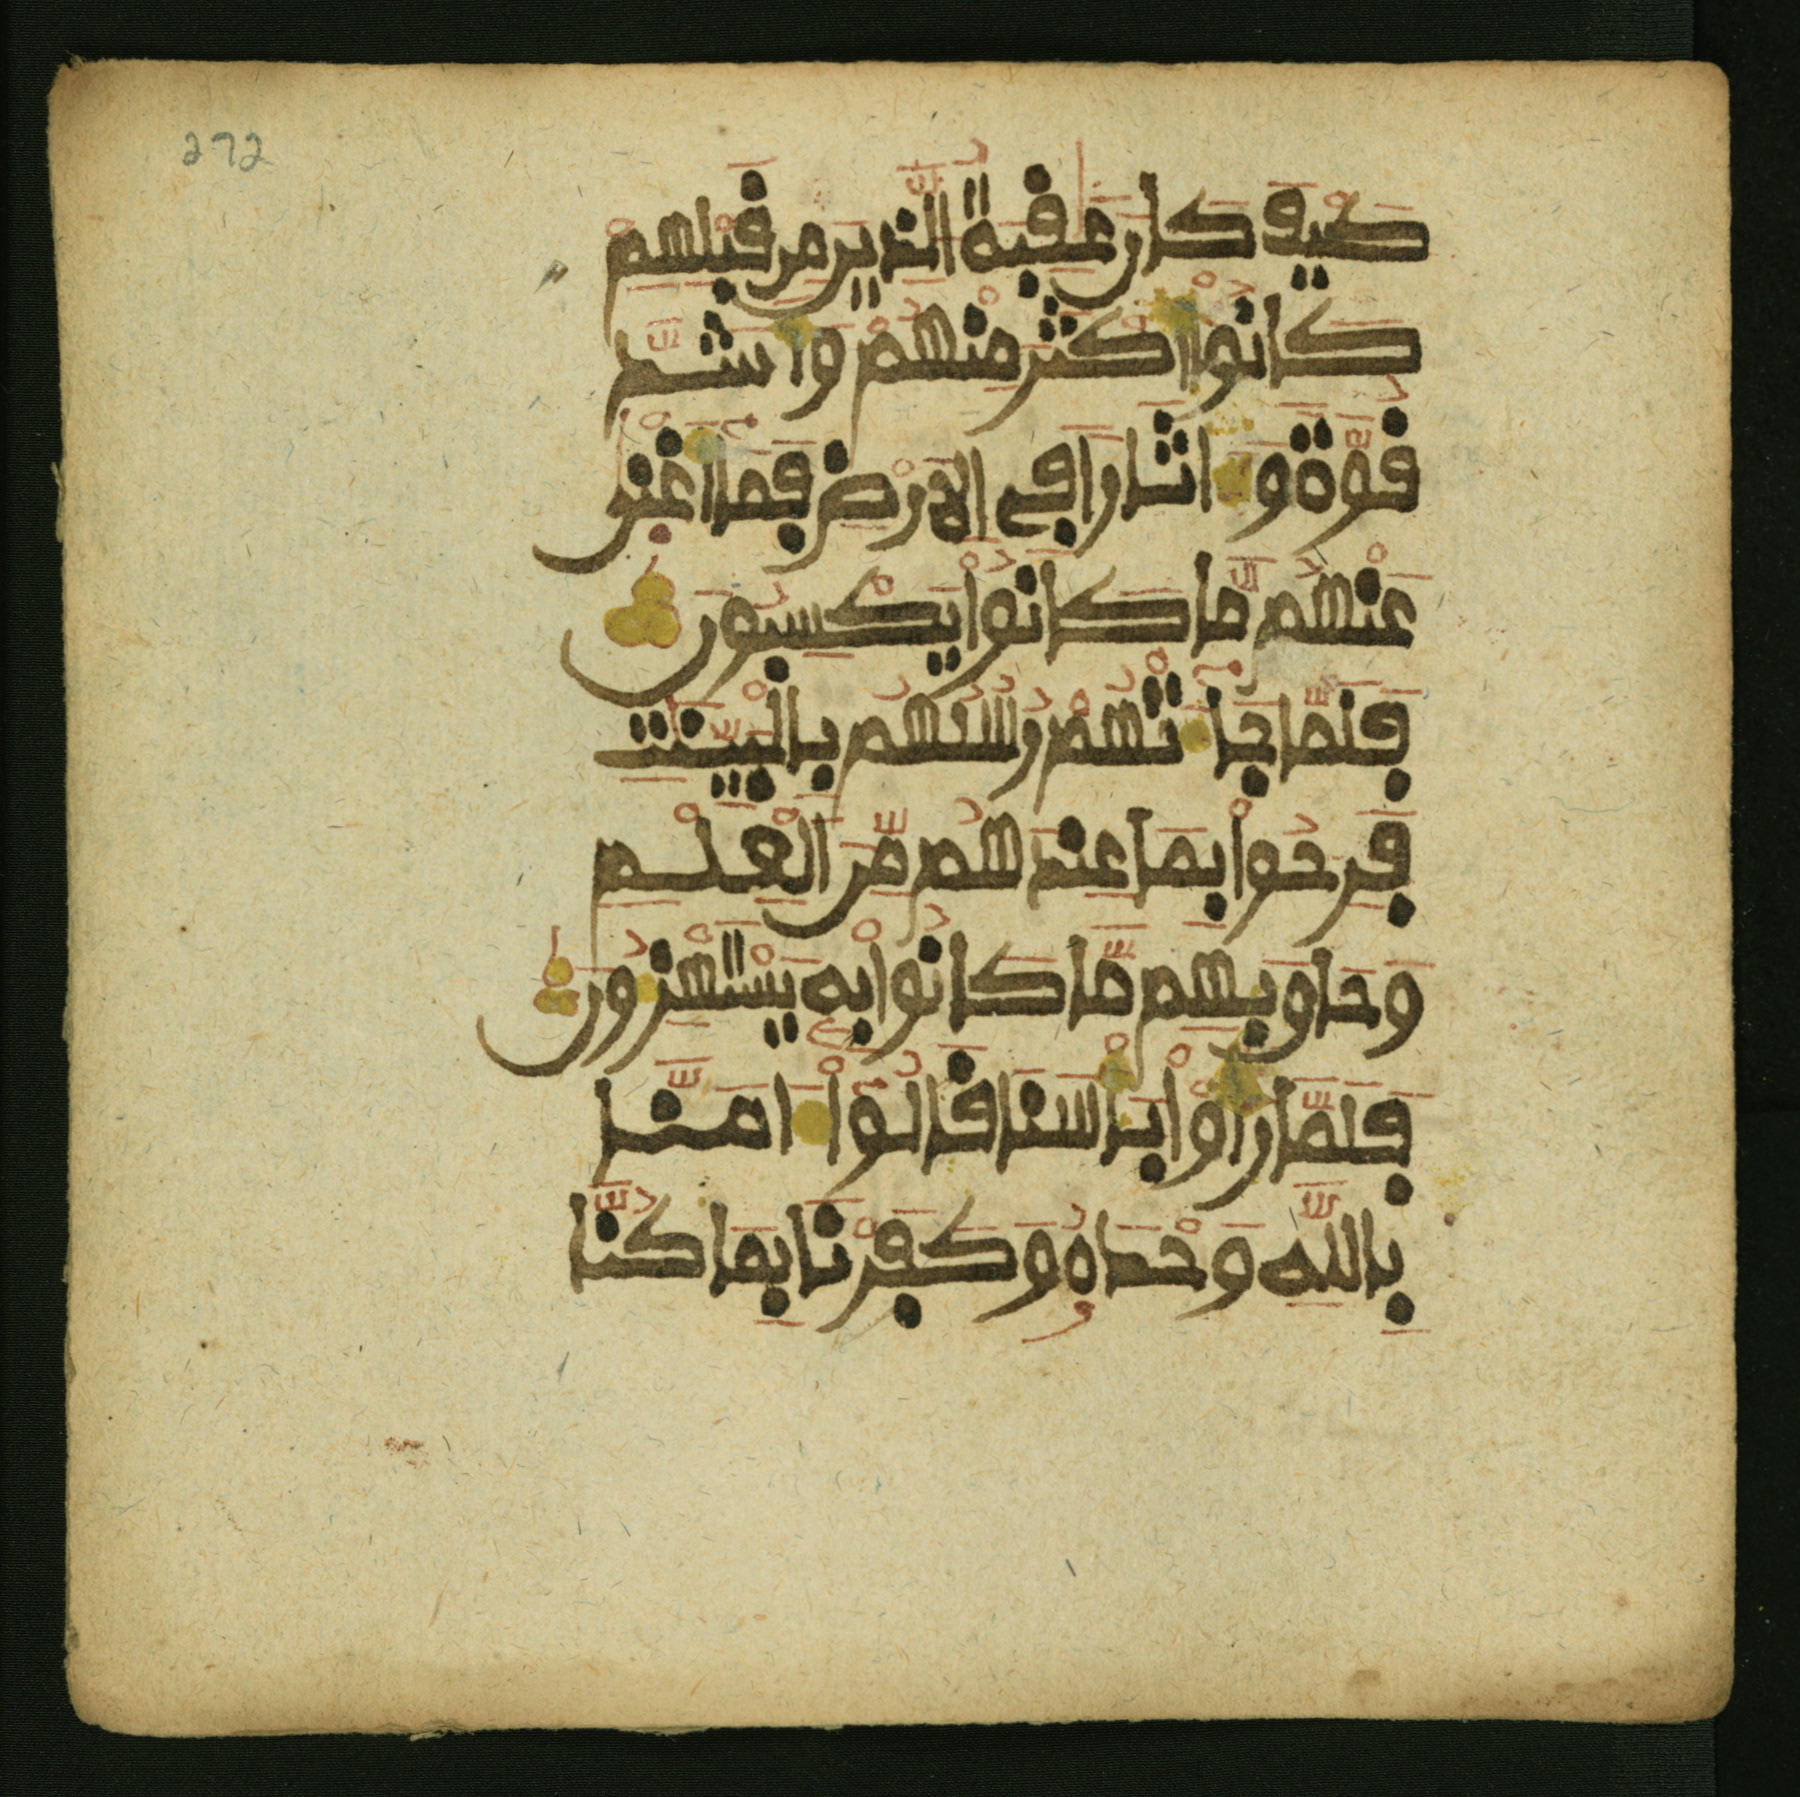 272
كيف كان عقبة الذين من قبلهم
كانوا أكثر منهم وأشد
قوة وءاثارا في الأرض فما أغنى
عنهم ما كانوا يكسبون
فلما جاءتهم رسلهم بالبينت
فرحوا بما عندهم من العلم
وحاق بهم ما كانوا به يستهزءون
فلما رأوا بأسنا قالوا ءامنا
بالله وحده وكفرنا بما كنا